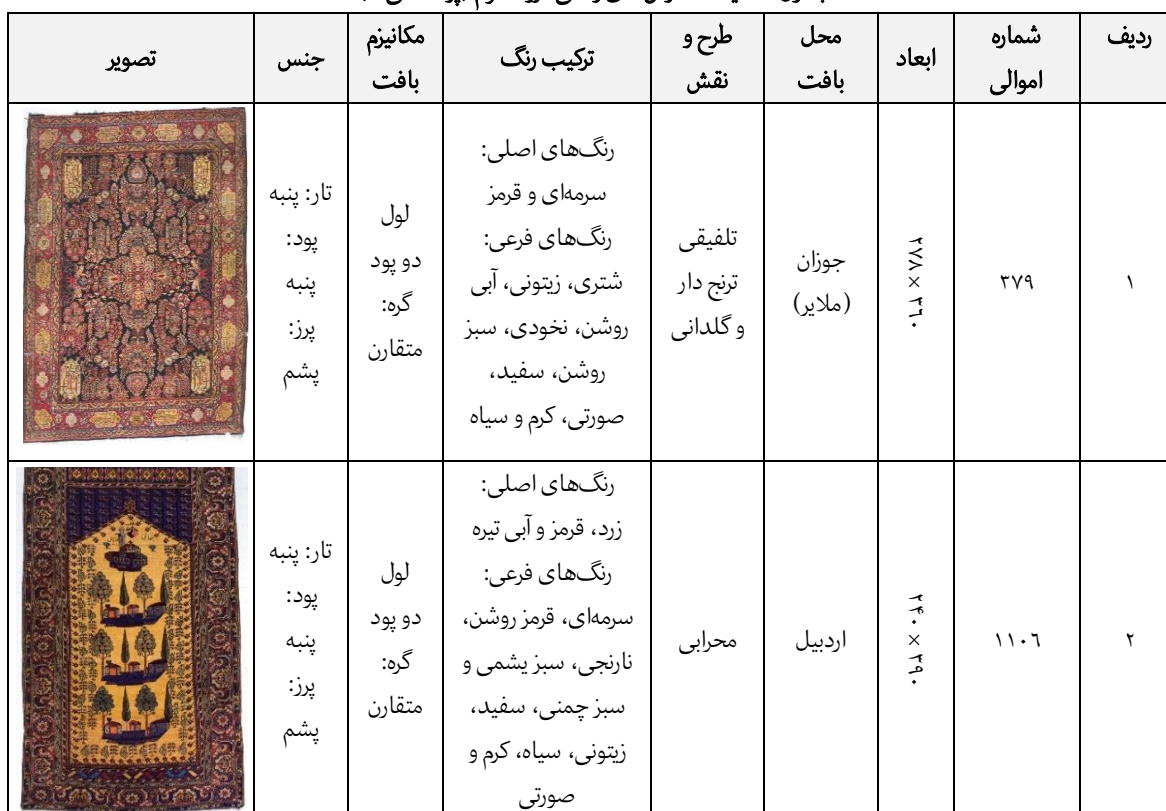 ردیف
شماره
اموالی
ابعاد
محل
بافت
طرح و
نقش
ترکیب رنگ
مکانیزم
بافت
جنس
تصویر
۱
۳۷۹
۲۷۸ × ۳۶۰
جوزان
(ملایر)
تلفیقی
ترنج دار
و گلدانی
رنگ‌های اصلی:
سرمه‌ای و قرمز
رنگ‌های فرعی:
شتری، زیتونی، آبی
روشن، نخودی، سبز
روشن، سفید،
صورتی، کرم و سیاه
لول
دو پود
گره:
متقارن
تار: پنبه
پود:
پنبه
پرز:
پشم
۲
۱۱۰۶
۲۴۰ × ۳۹۰
اردبیل
محرابی
رنگ‌های اصلی:
زرد، قرمز و آبی تیره
رنگ‌های فرعی:
سرمه‌ای، قرمز روشن،
نارنجی، سبز یشمی و
سبز چمنی، سفید،
زیتونی، سیاه، کرم و
صورتی
لول
دو پود
گره:
متقارن
تار: پنبه
پود:
پنبه
پرز:
پشم